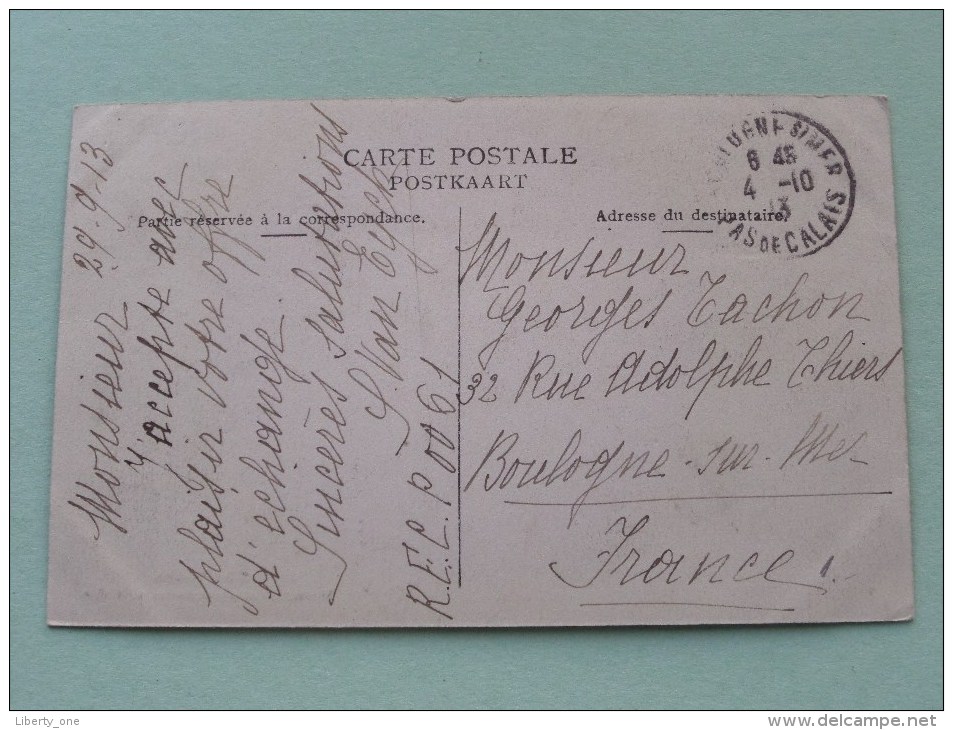 CARTE POSTALE
POSTKAART
Partie réservée à la correspondance.
Adresse du destinataire.
29-9-13
Monsieur
J'accepte avec
plaisir votre offre
d'echange.
Sincères salutations
S. Van Eyck
R.E.C.P 0061
Monsieur
Georges Tachon
32 Rue Adolphe Thiers
Boulogne-sur-Mer
France.
S/MER
6 45
4 -10
13
PAS DE CALAIS
Liberty_one
www.delcampe.net